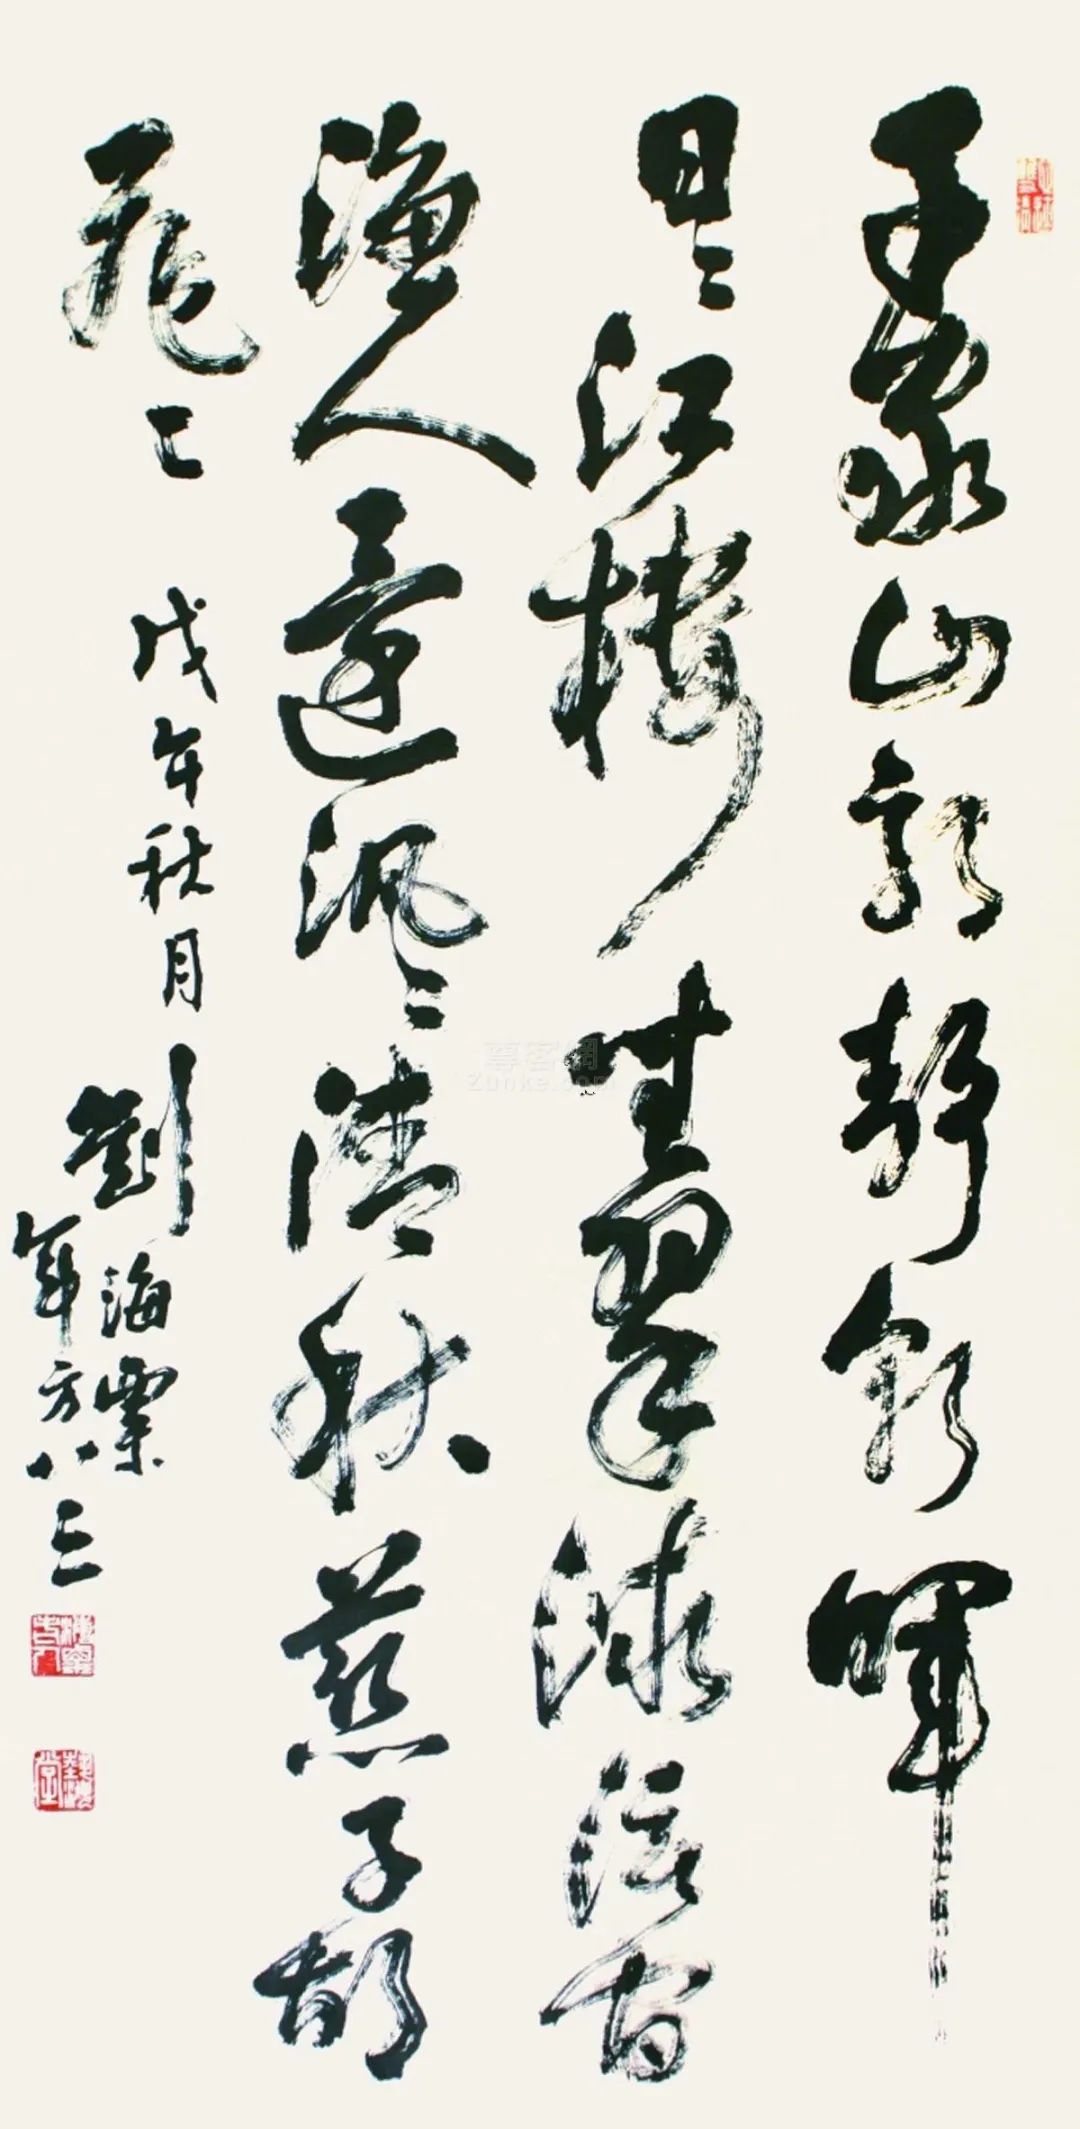 千家山郭靜朝暉
日〻江樓坐翠微信宿
漁人還汎〻清秋燕子故
飛〻 戊午秋月 劉海粟
年方八三
尊客網
Zunke.com